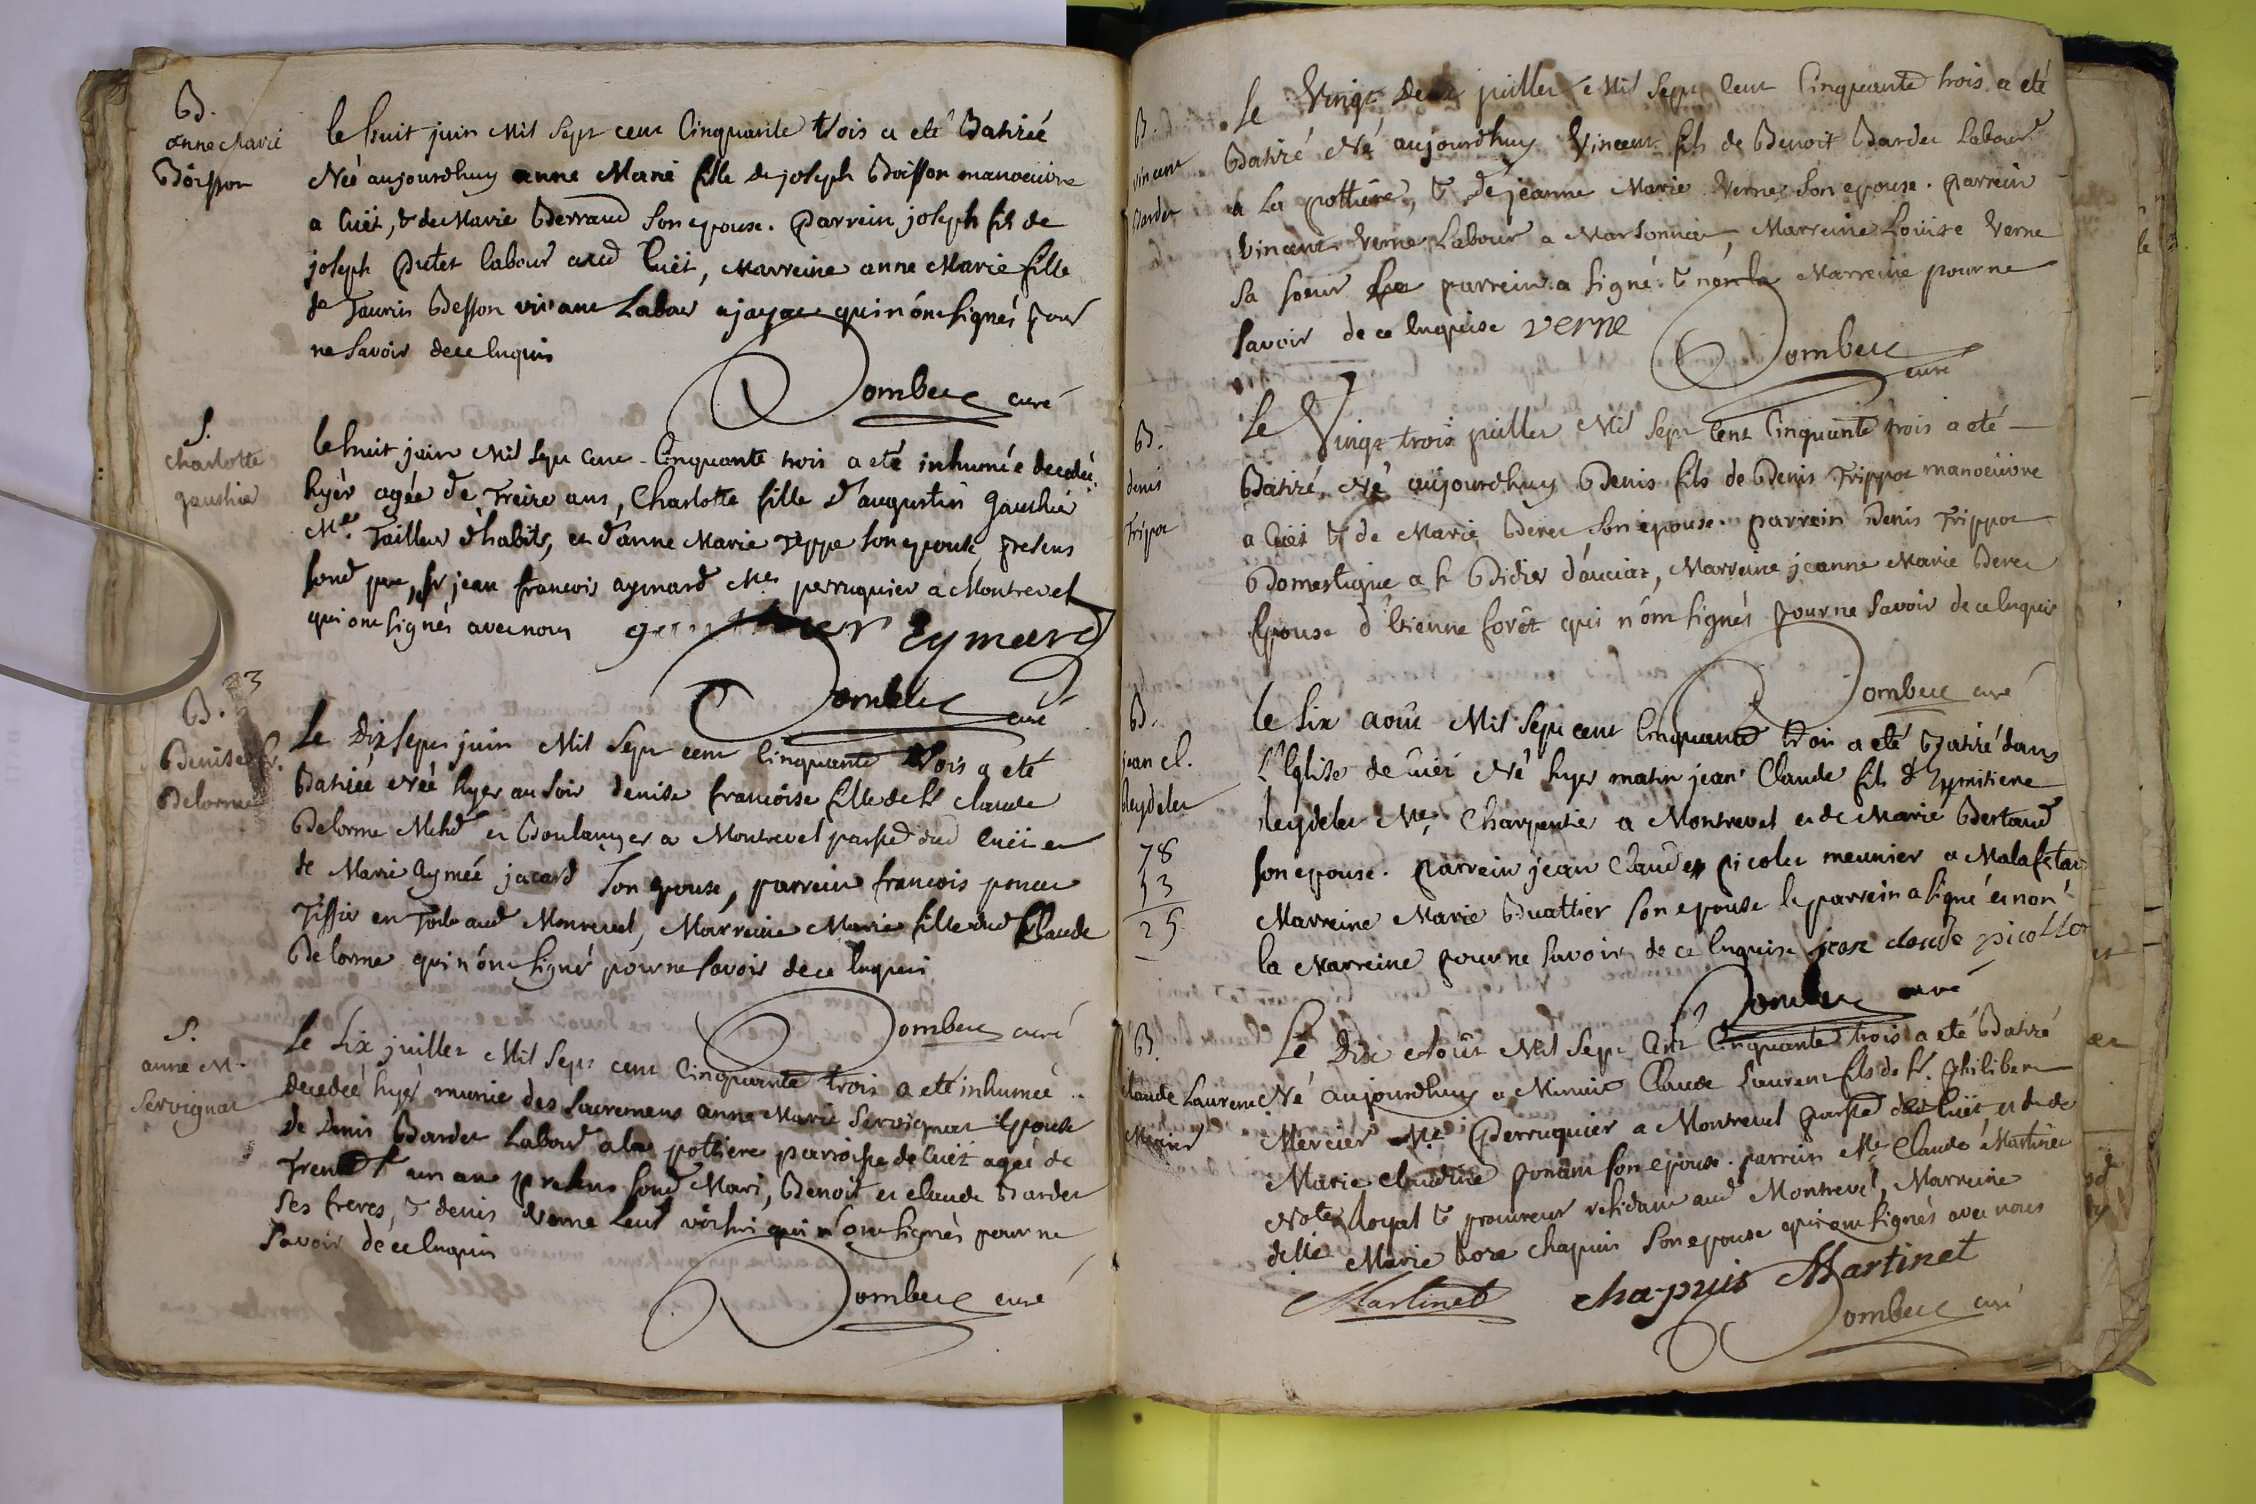 B.
anne Marie
Boisson
le huit juin Mil Sept cent Cinquante trois a eté Batisée
Née aujourdhuy anne Marie fille de joseph Boisson manoeuvre
a Cuët, & de Marie Berraud Son epouse. Parrein joseph fils de
joseph Putet labour aud Cuët, Marreine anne Marie fille
de Taurin Besson vivant Labour a jayac qui n'ont signés pour
ne Savoir de ce Enquis
Dombey curé
S.
charlotte
gauthier
le huit juin Mil Sept Cent Cinquante trois a eté inhumée decedée
hyèr agée de Treize ans, Charlotte fille d'augustin gauthier
Me. Tailleur d'habits, et d'anne Marie Teppe son epouse, presens
sond pere, sr jean francois aymard Me. perruquier a Montrevel
qui ont signés avec nous gauthier Eymard
Dombey curé
B. 3
Denise fr.
Delorme
Le Dix Sept juin Mil Sept cent Cinquante trois a eté
Batisée Née hyer au Soir denise francoise fille de Sr claude
Delorme Mchd et Boulanger a Montrevel parsse dud Cuët et
de Marie Aymée jacard Son epouse, parrein francois poncet
Tissier en Toile aud Montrevel, Marreine Marie fille dud Claude
Delorme qui n'ont Signé pour ne Savoir de ce Enquis
Dombey curé
S.
anne M.
Servignat
Le Six juillet Mil Sept cent Cinquante trois a eté inhumée
decedée hyèr munie des Sacremens anne Marie Servignat Epouse
de Denis Bardet Labour a la pottiere parroisse de Cuët agée de
Trente un ans presens sond Mari, Benoit et claude Bardet
Ses freres, & denis Verne Leur voisin qui n'ont signés pour ne
Savoir de ce Enquis
Dombey curé
B.
vincent
Bardet
Le Vingt Deux juillet Mil Sept Cent Cinquante trois a eté
Batisé Né aujourdhuy Vincent fils de Benoit Bardet Labour
a La pottiere, & de jeanne Marie Verne Son epouse. parrein
Vincent Verne Labour a Marsonnas, Marreine Louise Verne
Sa soeur Le parrein a signé & non la Marreine pour ne
Savoir de ce Enquise verne
Dombey curé
B.
denis
Tripoz
Le Vingt trois juillet Mil Sept Cent Cinquante trois a eté
Batisé, Né aujourdhuy Denis fils de Denis Trippoz manoeuvre
a Cuët & de Marie Beret Son epouse. parrein Denis Trippoz
Domestique a Sr Didier d'auciat, Marreine jeanne Marie Beret
Epouse d'Etienne forêt qui n'ont signés pour ne Savoir de ce Enquis
Dombey curé
B.
jean cl.
Reydelet
78
53
25
le Six août Mil Sept cent Cinquante trois a eté Batisé dans
L'Eglise de Cuët Né hyer matin jean Claude fils d'
Reydelet Me. Charpentier a Montrevel et de Marie Bertaud
Son epouse. parrein jean Claude picolet meunier a Malafretaz
Marreine Marie Buattier Son epouse le parrein a signé et non
la Marreine pour ne Savoir de ce Enquise jean claude picollet
Dombey curé
B.
Claude Laurent
Mercier
Le Dix Août Mil Sept Cent Cinquante trois a eté Batisé
Né aujourdhuy a Minuit Claude Laurent fils de Sr. philibert
Mercier Me. Perruquier a Montrevel parsse dud Cuët et de de
Marie claudine ponant son epouse. parrein Me. Claude Martinet
Note. Royal & procureur residant aud Montrevel, Marreine
delle Marie chapuis Son epouse qui ont signés avec nous
Martinet chapuis Martinet
Dombey curé